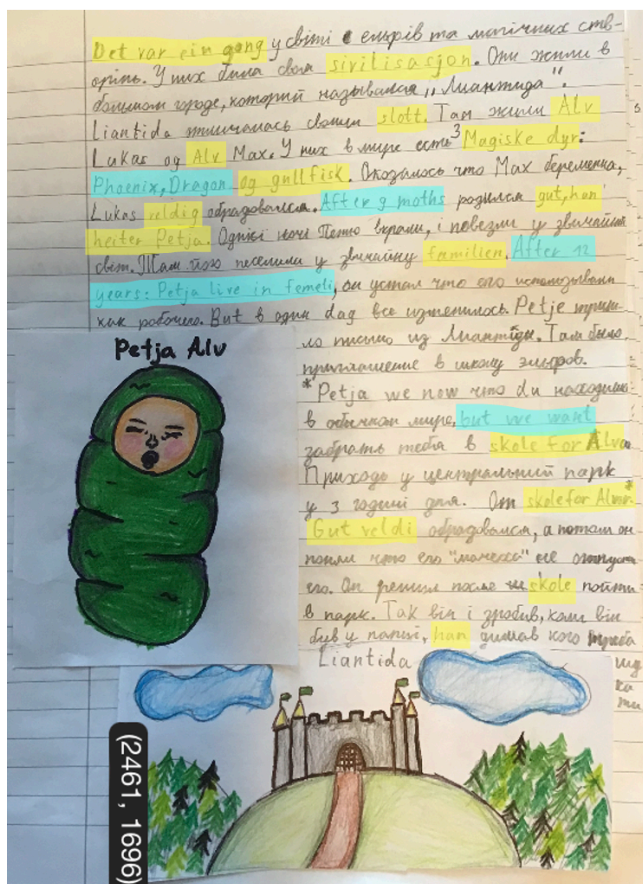 Det var ein gang у світі ельфів та магічних ств-
орінь. У них била своя sivilisasjon. Они жили в
большом городе, который назывался „Лиантида".
Liantida отличалась своим slott. Там жили Alv
Lukas og Alv Max. У них в мире есть 3 Magiske dyr:
Phoenix, Dragon og gullfisk. Оказалось что Max беременна,
Lukas veldig обрадовался. After 9 moths родился gut, han
heiter Petja. Однієї ночі Петю вкрали, і повезли у звичайни
світ. Там його поселили у звичайну familien. After 12
years: Petja live in femeli, он устал что его использывали
как рабочего. But в один dag все изменилось. Petje пришло
ло письмо из Лиантіди. Там было
приглашение в школу эльфов.
*Petja we now что du находишь
в обычном мире, but we want
забрать тебя в skole for Alva
Приходь у центральний парк
у 3 годині дня. От skole for Alver*
Gut veldi обрадовался, а потом он
понял что его "мачеха" не отпуст
его. Он решил после skole пойти
в парк. Так він і зробив, коли він
був у парку, han думав кого треба
шу
ка
ти
Petja Alv
Liantida
(2461, 1696)